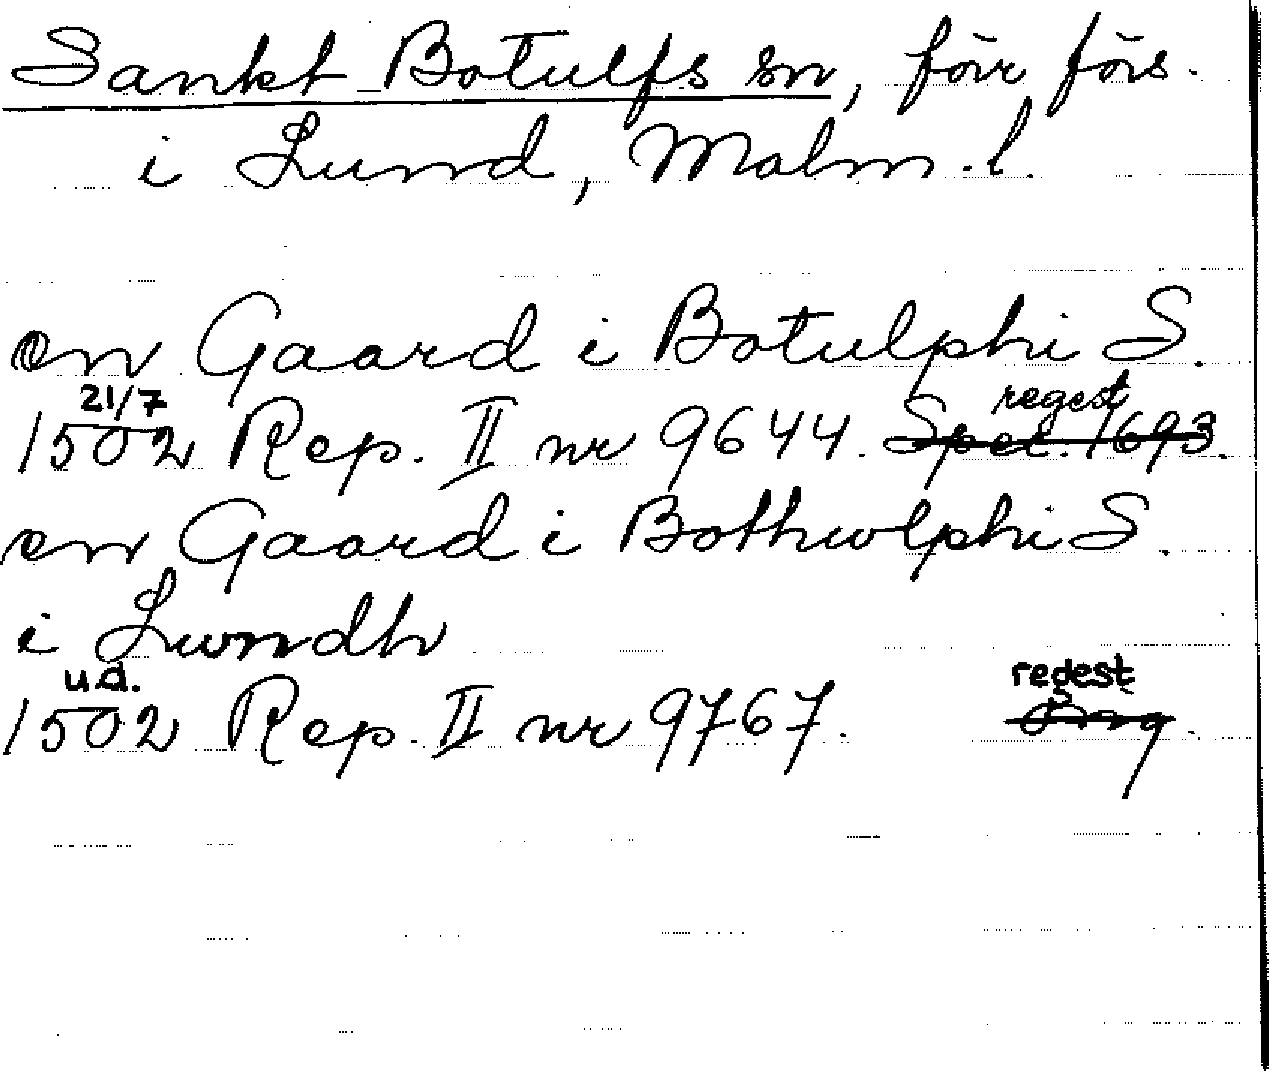 Sankt Botulfs sn, förr förs.
i Lund, Malm. l.
en Gaard i Botulphi S.
21/7 regest
1502 Rep. II nr 9644. Spec. 1693.
en Gaard i Bothwlphi S.
i Lwndh
u.d. regest
1502 Rep. II nr 9767.